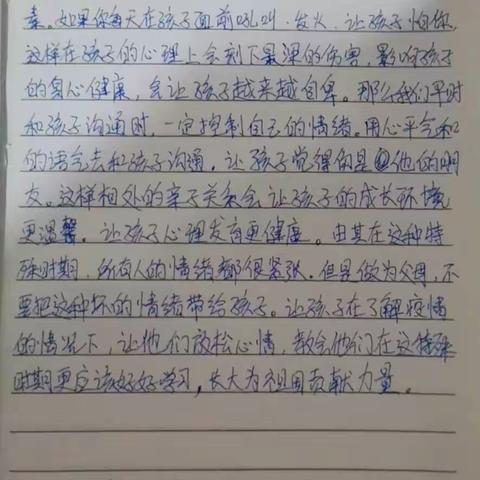 素。如果你每天在孩子面前吼叫、发火、让孩子怕你,
这样在孩子的心理上会刻下最深的伤害,影响孩子
的身心健康,会让孩子越来越自卑。那么我们平时
和孩子沟通时,一定控制自己的情绪。用心平气和
的语气去和孩子沟通,让孩子觉得你是他的朋
友。这样相处的亲子关系会让孩子的成长环境
更温馨,让孩子心理发育更健康。由其在这种特
殊时期,所有人的情绪都很紧张,但是做为父母,不
要把这种坏的情绪带给孩子。让孩子在了解疫情
的情况下,让他们放松心情,教会他们在这特殊
时期更应该好好学习,长大为祖国贡献力量。